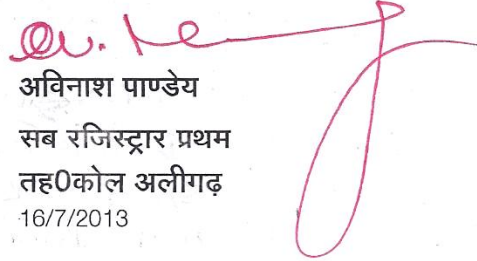 अविनाश पाण्डेय
सब रजिस्ट्रार प्रथम
तह0कोल अलीगढ़
16/7/2013